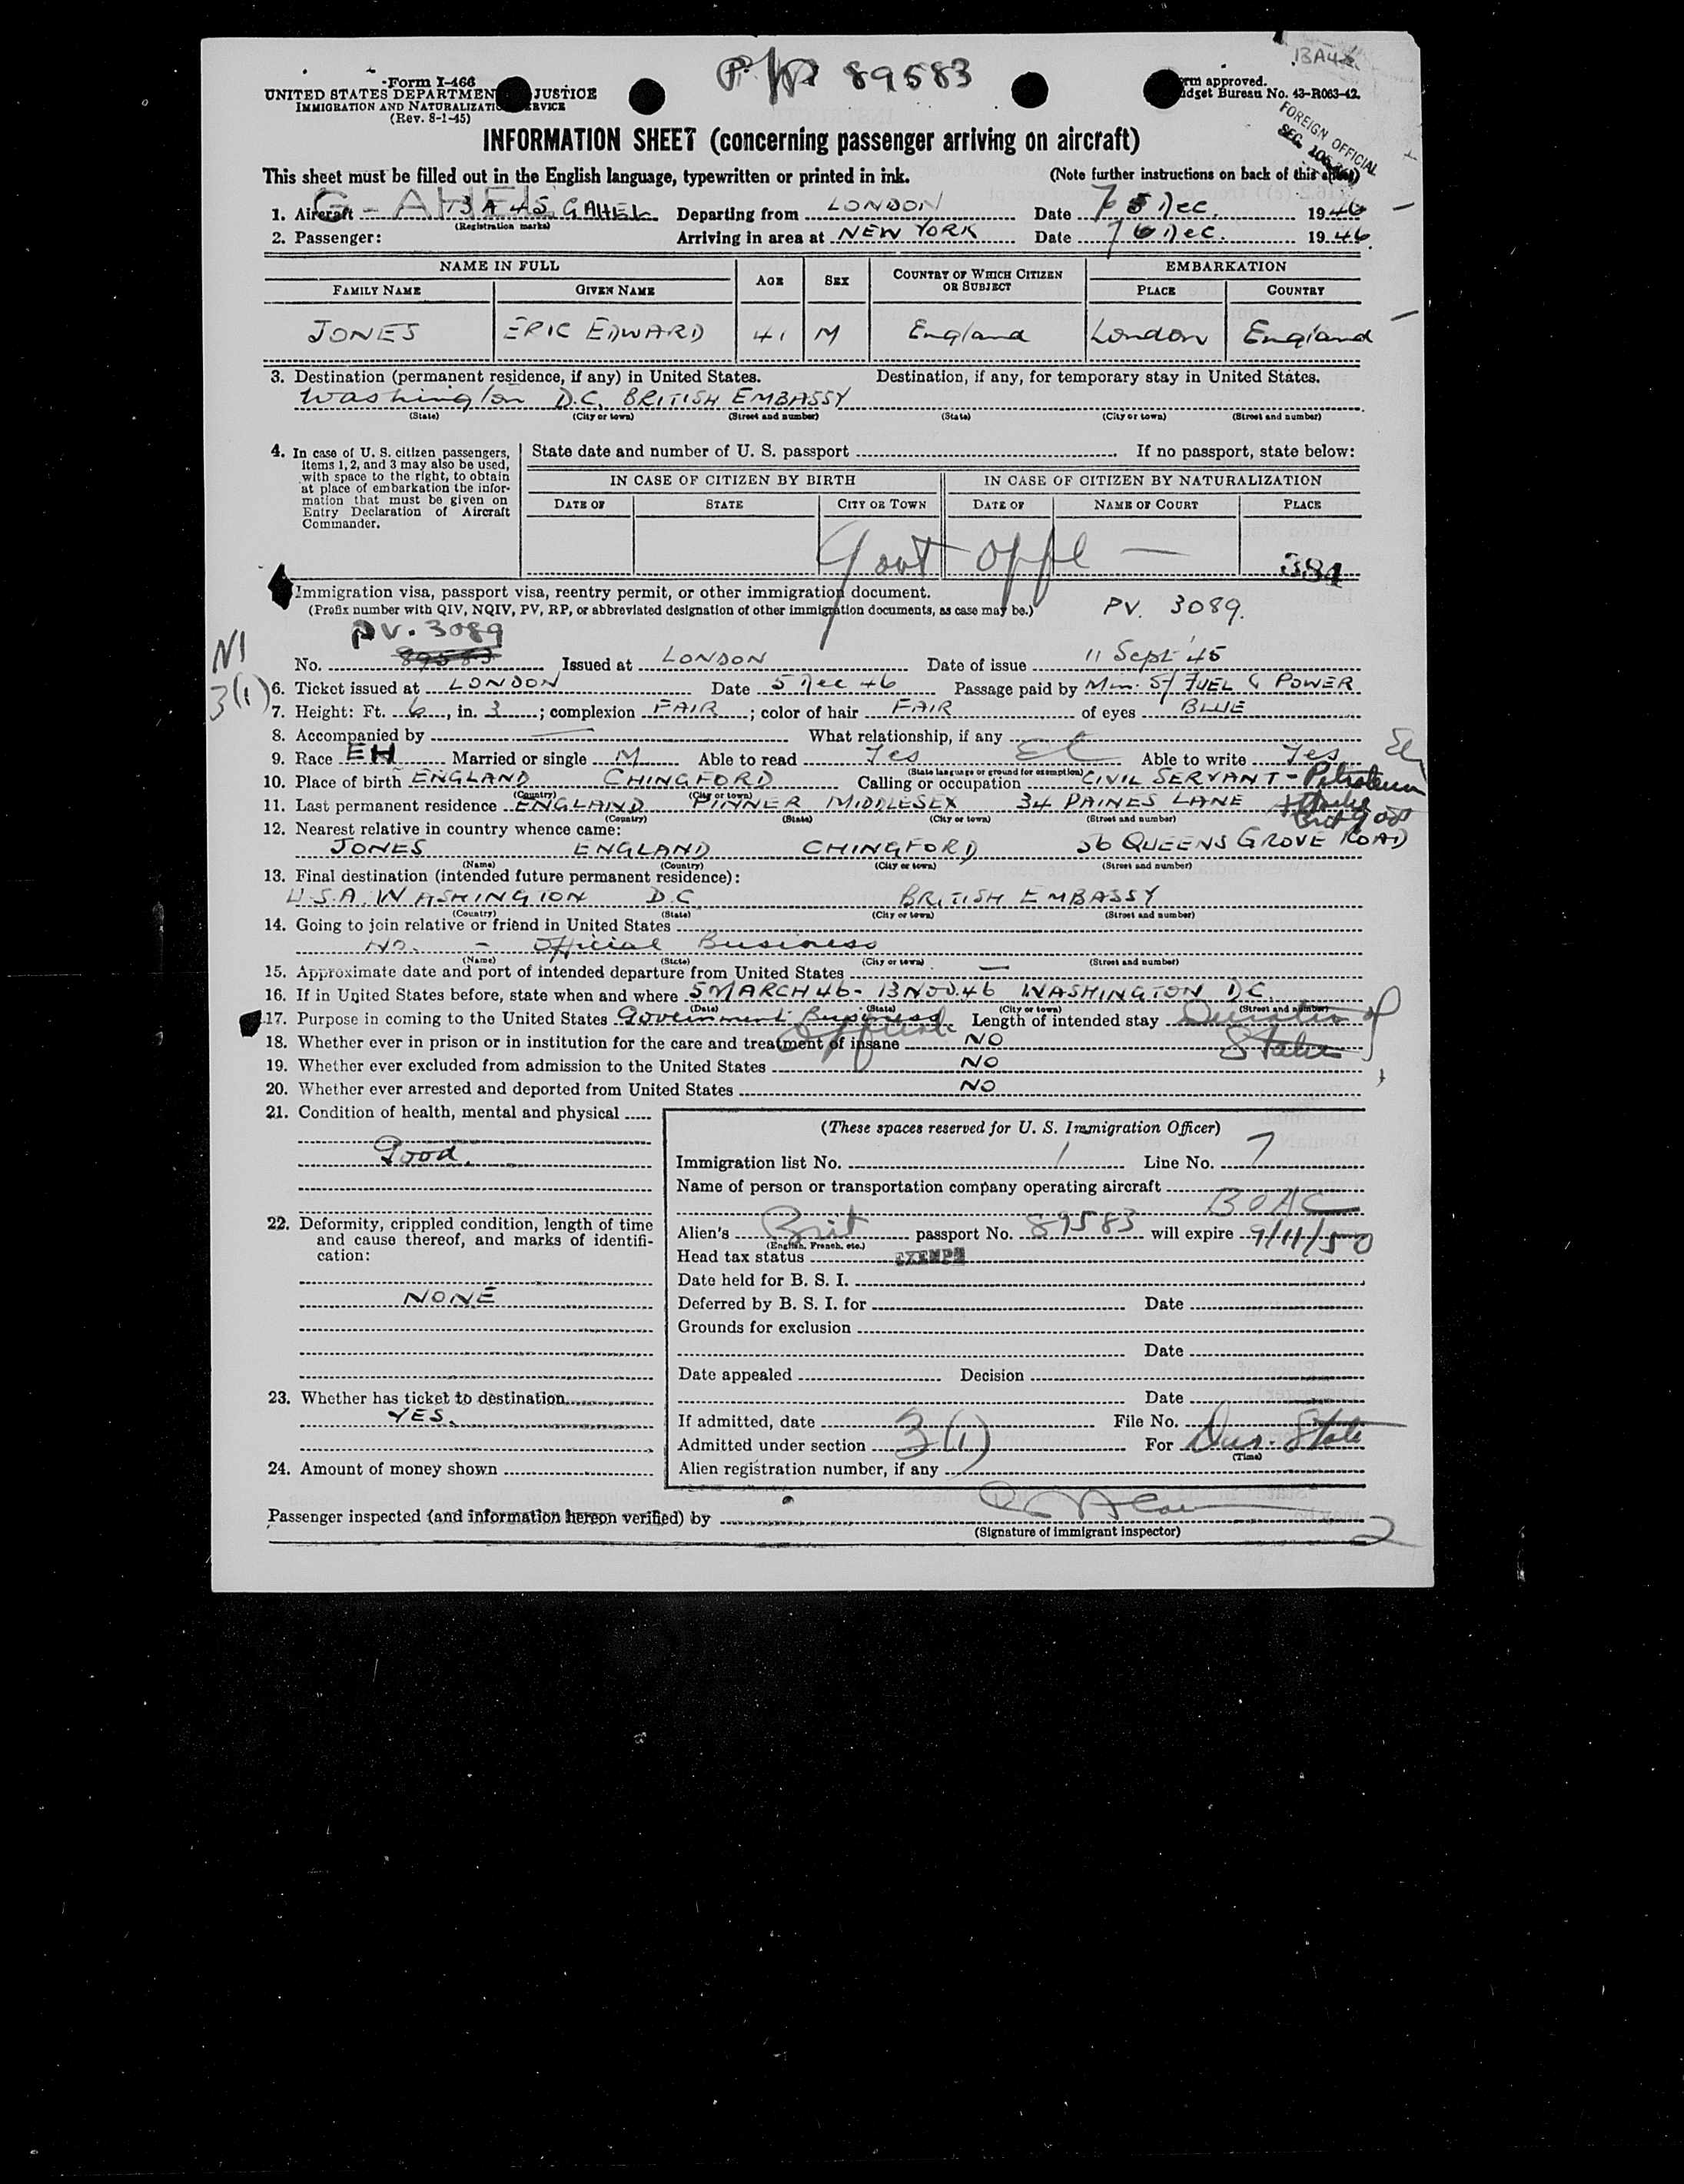 BA45
P.W. 89583
Form I-466
UNITED STATES DEPARTMENT JUSTICE
IMMIGRATION AND NATURALIZATION SERVICE
(Rev. 8-1-45)
Form approved.
Budget Bureau No. 43-R063-42.
FOREIGN OFFICIAL
SEC.
INFORMATION SHEET (concerning passenger arriving on aircraft)
This sheet must be filled out in the English language, typewritten or printed in ink. (Note further instructions on back of this sheet)
G-AHEL
1. Aircraft BA 45 GAHEL Departing from LONDON Date 7 5 Dec. 1946
(Registration marks)
2. Passenger: Arriving in area at NEW YORK Date 7 6 Dec. 1946
NAME IN FULL AGE SEX COUNTRY OF WHICH CITIZEN OR SUBJECT EMBARKATION
FAMILY NAME GIVEN NAME PLACE COUNTRY
JONES ERIC EDWARD 41 M England London England
3. Destination (permanent residence, if any) in United States. Destination, if any, for temporary stay in United States.
Washington D.C. BRITISH EMBASSY
(State) (City or town) (Street and number) (State) (City or town) (Street and number)
4. In case of U. S. citizen passengers, items 1, 2, and 3 may also be used, with space to the right, to obtain at place of embarkation the information that must be given on Entry Declaration of Aircraft Commander.
State date and number of U. S. passport If no passport, state below:
IN CASE OF CITIZEN BY BIRTH IN CASE OF CITIZEN BY NATURALIZATION
DATE OF STATE CITY OR TOWN DATE OF NAME OF COURT PLACE
Govt Offl — 384
Immigration visa, passport visa, reentry permit, or other immigration document.
(Prefix number with QIV, NQIV, PV, RP, or abbreviated designation of other immigration documents, as case may be.) PV. 3089.
PV. 3089
NI
No. 89583 Issued at LONDON Date of issue 11 Sept '45
3(1)
6. Ticket issued at LONDON Date 5 Dec 46 Passage paid by Min. of FUEL & POWER
7. Height: Ft. 6, in. 3; complexion FAIR; color of hair FAIR of eyes BLUE
8. Accompanied by — What relationship, if any
9. Race EH Married or single M Able to read Yes Able to write Yes
(State language or ground for exemption)
10. Place of birth ENGLAND CHINGFORD Calling or occupation CIVIL SERVANT - Petroleum
(Country) (City or town)
11. Last permanent residence ENGLAND PINNER MIDDLESEX 34 PAINES LANE
Brit Govt
(Country) (State) (City or town) (Street and number)
12. Nearest relative in country whence came:
JONES ENGLAND CHINGFORD 36 QUEENS GROVE ROAD
(Name) (Country) (City or town) (Street and number)
13. Final destination (intended future permanent residence):
U.S.A. WASHINGTON D.C. BRITISH EMBASSY
(Country) (State) (City or town) (Street and number)
14. Going to join relative or friend in United States
NO. - Official Business
(Name) (State) (City or town) (Street and number)
15. Approximate date and port of intended departure from United States —
16. If in United States before, state when and where 5 MARCH 46 - 13 NOV. 46 WASHINGTON D.C.
(Date) (State) (City or town) (Street and number)
17. Purpose in coming to the United States Government Business. Length of intended stay Duration of
Official Status
18. Whether ever in prison or in institution for the care and treatment of insane NO
19. Whether ever excluded from admission to the United States NO
20. Whether ever arrested and deported from United States NO
21. Condition of health, mental and physical
Good.
22. Deformity, crippled condition, length of time and cause thereof, and marks of identification:
NONE
23. Whether has ticket to destination
YES.
24. Amount of money shown
(These spaces reserved for U. S. Immigration Officer)
Immigration list No. 1 Line No. 7
Name of person or transportation company operating aircraft
BOAC
Alien's Brit passport No. 89583 will expire 9/11/50
(English, French, etc.)
Head tax status EXEMPT
Date held for B. S. I.
Deferred by B. S. I. for Date
Grounds for exclusion
Date
Date appealed Decision
Date
If admitted, date File No.
Admitted under section 3(1) For Dur. State
(Time)
Alien registration number, if any
Passenger inspected (and information hereon verified) by
(Signature of immigrant inspector)
2